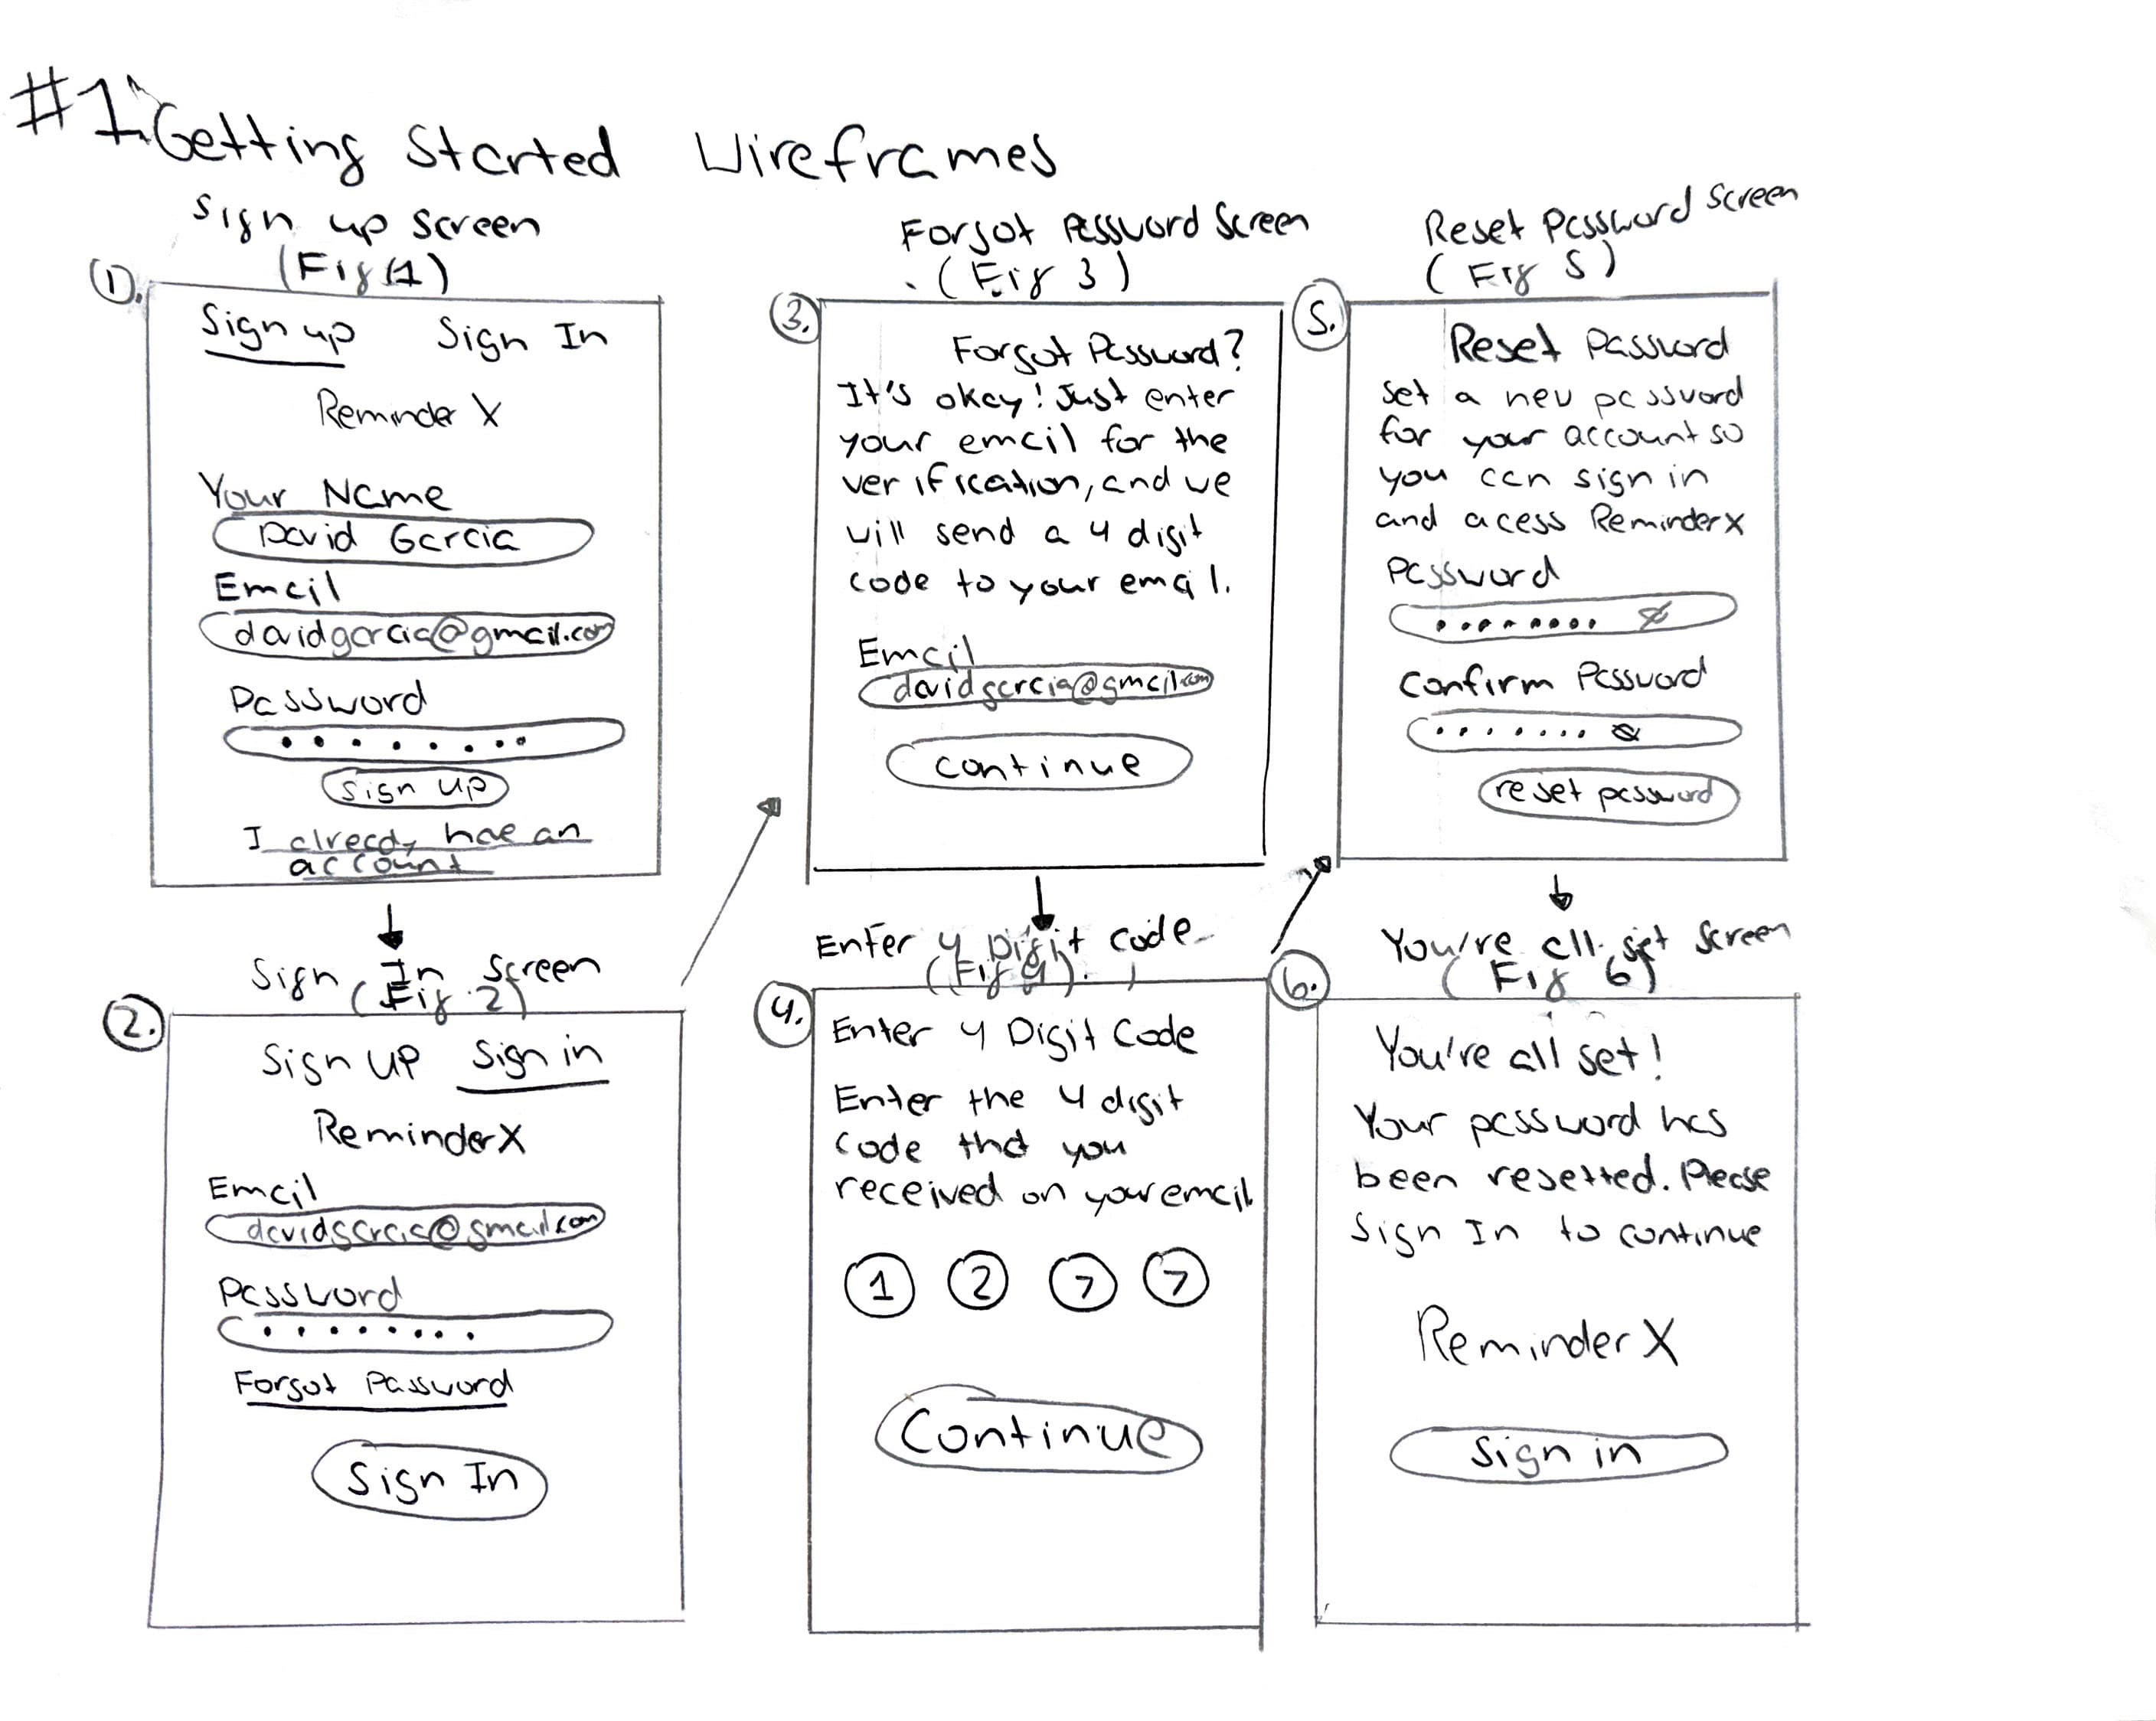 #1 Getting Started Wireframes
Sign up screen
(Fig 1)
1.
Sign up Sign In
Reminder X
Your Name
David Garcia
Email
davidgarcia@gmail.com
Password
sign up
I already hae an
account
Sign In Screen
(Fig 2)
2.
Sign UP Sign in
ReminderX
Email
davidgarcia@gmail.com
Password
Forgot Password
Sign In
Forgot Password Screen
(Fig 3)
3.
Forgot Password?
It's okay! Just enter
your email for the
verification, and we
will send a 4 digit
code to your email.
Email
davidgarcia@gmail.com
continue
Enter 4 Digit code
(Fig 4)
4.
Enter 4 Digit Code
Enter the 4 digit
code that you
received on your email
1 2 7 7
Continue
Reset Password Screen
(Fig 5)
5.
Reset Password
Set a new password
for your account so
you can sign in
and acess ReminderX
Password
Confirm Password
reset password
You're all set screen
(Fig 6)
6.
You're all set!
Your password has
been resetted. Please
Sign In to continue
Reminder X
Sign in